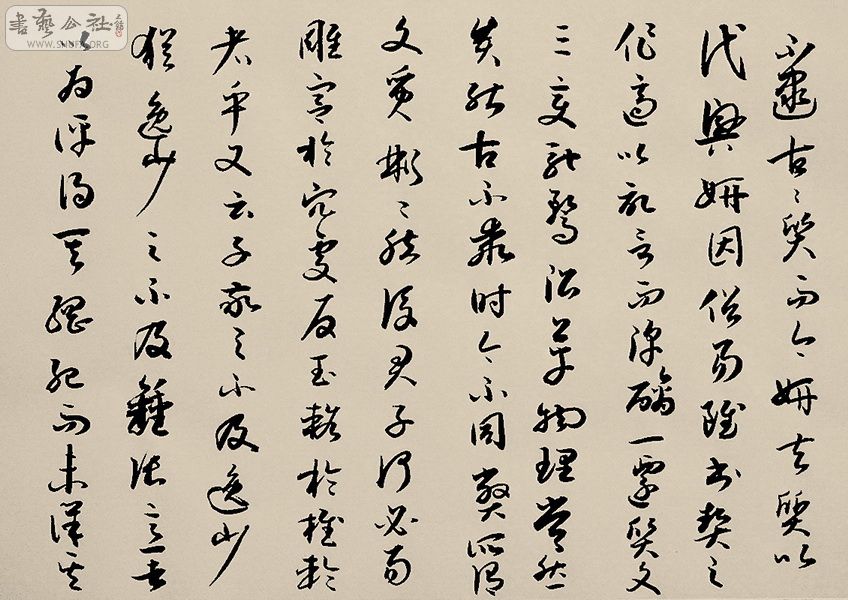 不逮古〻質而今妍夫質以
代興妍因俗易雖書契之
作適以記言而淳醨一遷質文
三變馳騖沿革物理常然
貴能古不乖時今不同弊所謂
文質彬〻然後君子何必易
雕宮於穴處反玉輅於椎輪
者乎又云子敬之不及逸少
猶逸少之不及鍾張意者
以為評得其綱紀而未詳其
書藝公社
WWW.SHUFA.ORG